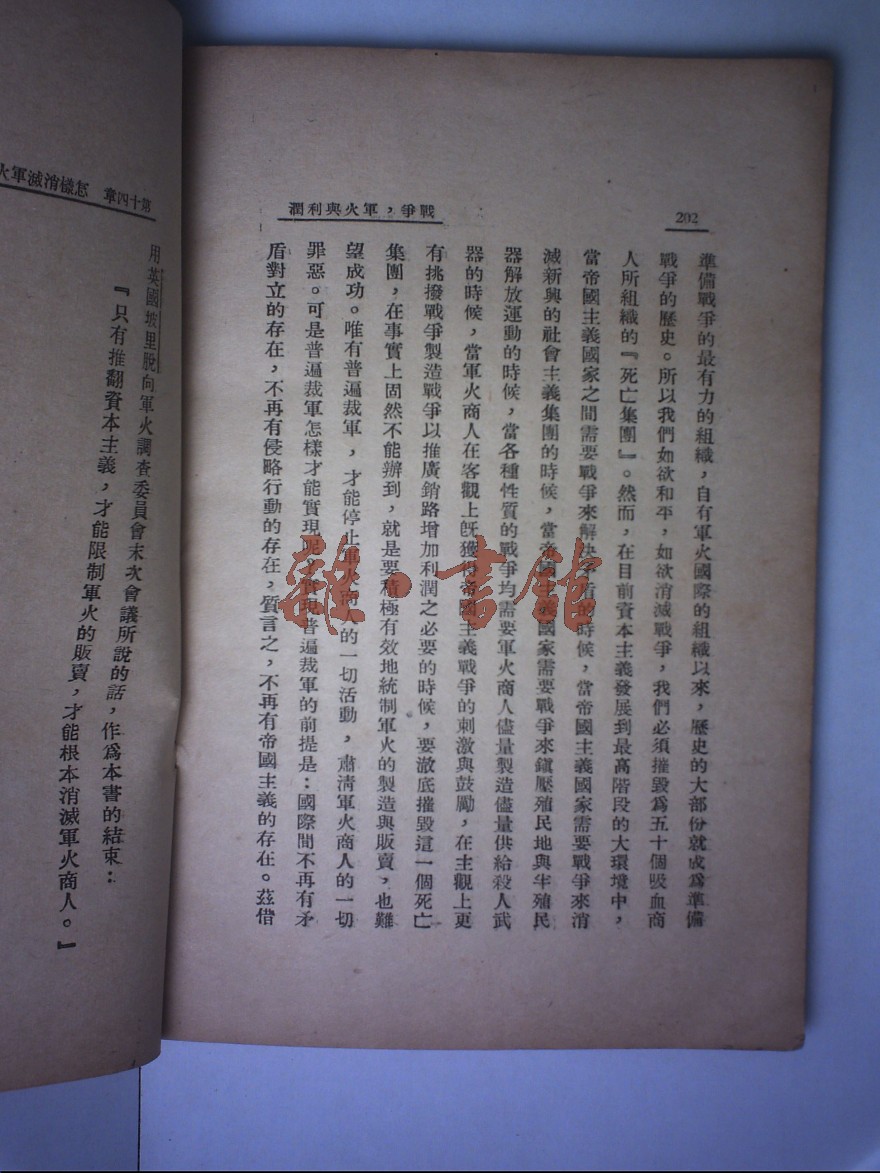 202
戰爭，軍火與利潤
準備戰爭的最有力的組織，自有軍火國際的組織以來，歷史的大部份就成爲準備
戰爭的歷史。所以我們如欲和平，如欲消滅戰爭，我們必須摧毀爲五十個吸血商
人所組織的『死亡集團』。然而，在目前資本主義發展到最高階段的大環境中，
當帝國主義國家之間需要戰爭來解決矛盾的時候，當帝國主義國家需要戰爭來消
滅新興的社會主義集團的時候，當帝國主義國家需要戰爭來鎭壓殖民地與半殖民
器解放運動的時候，當各種性質的戰爭均需要軍火商人儘量製造儘量供給殺人武
器的時候，當軍火商人在客觀上旣獲得帝國主義戰爭的刺激與鼓勵，在主觀上更
有挑撥戰爭製造戰爭以推廣銷路增加利潤之必要的時候，要澈底摧毀這一個死亡
集團，在事實上固然不能辦到，就是要積極有效地統制軍火的製造與販賣，也難
望成功。唯有普遍裁軍，才能停止軍火商人的一切活動，肅清軍火商人的一切
罪惡。可是普遍裁軍怎樣才能實現呢，實現普遍裁軍的前提是：國際間不再有矛
盾對立的存在，不再有侵略行動的存在，質言之，不再有帝國主義的存在。茲借
第十四章 怎樣消滅軍火
用英國坡里脫向軍火調查委員會末次會議所說的話，作爲本書的結束：
『只有推翻資本主義，才能限制軍火的販賣，才能根本消滅軍火商人。』
雜·書館